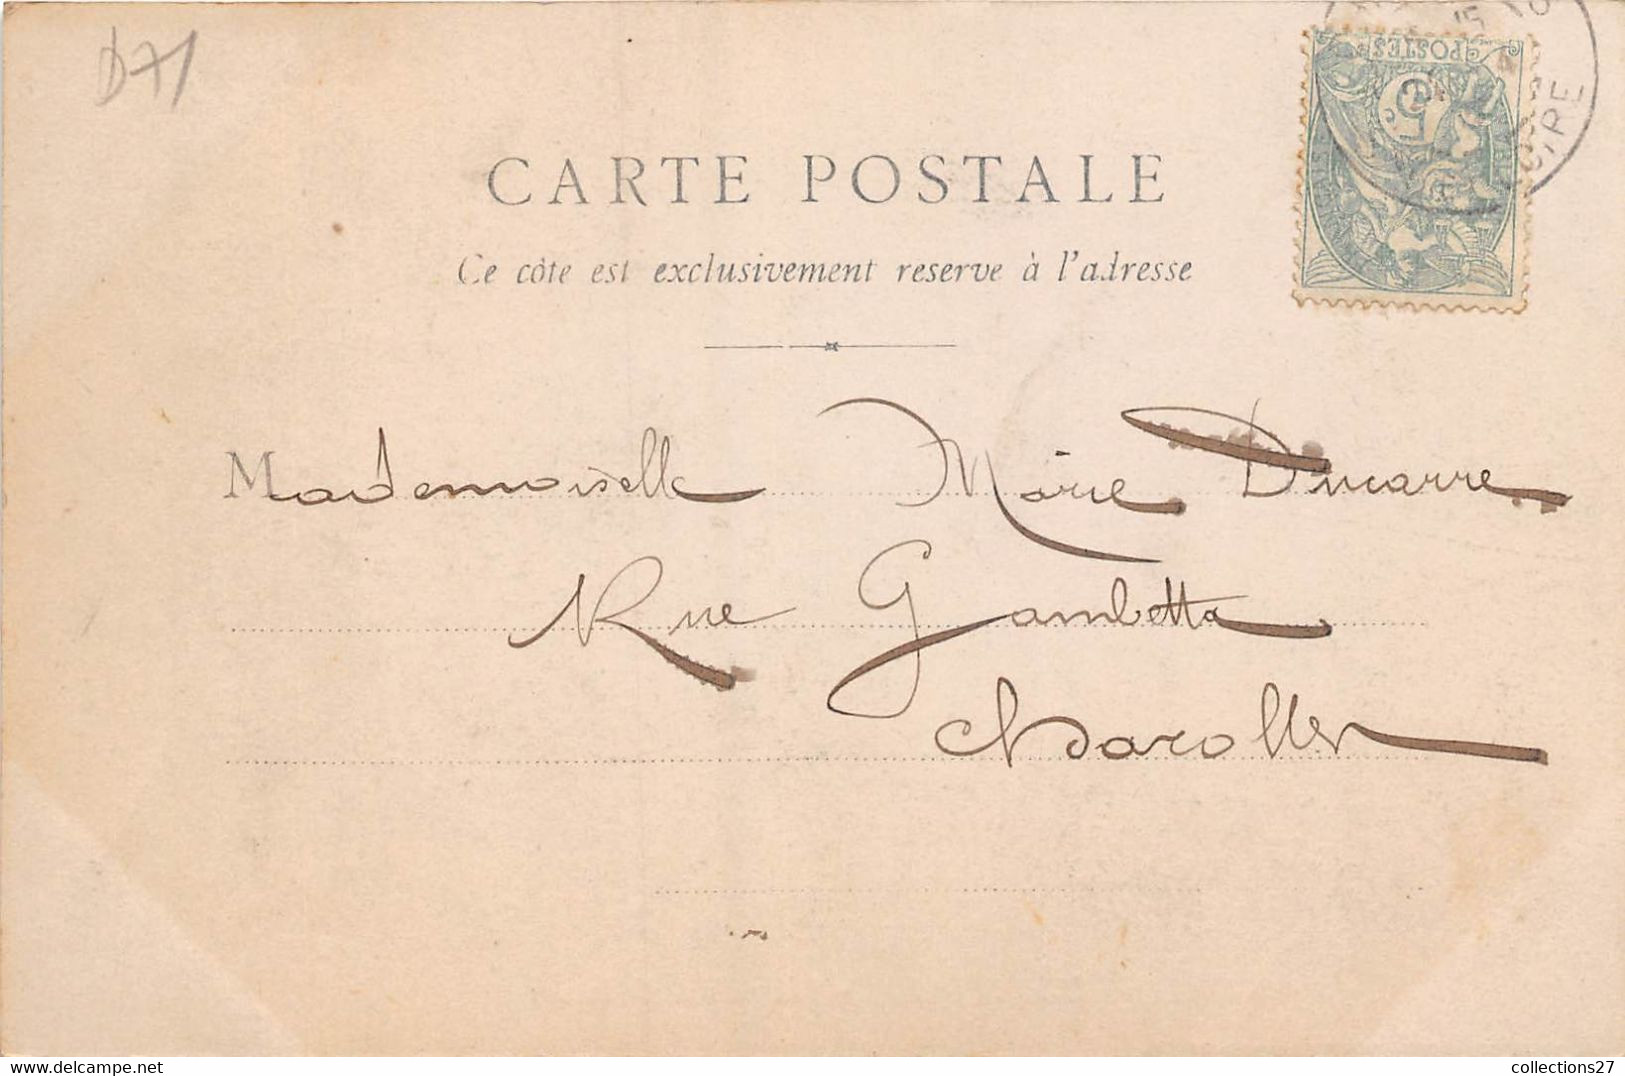 D71
POSTES
5
15
OIRE
CARTE POSTALE
Ce côte est exclusivement reserve à l'adresse
Mademoiselle Marie Ducarre
Rue Gambetta
Charolles
collections27